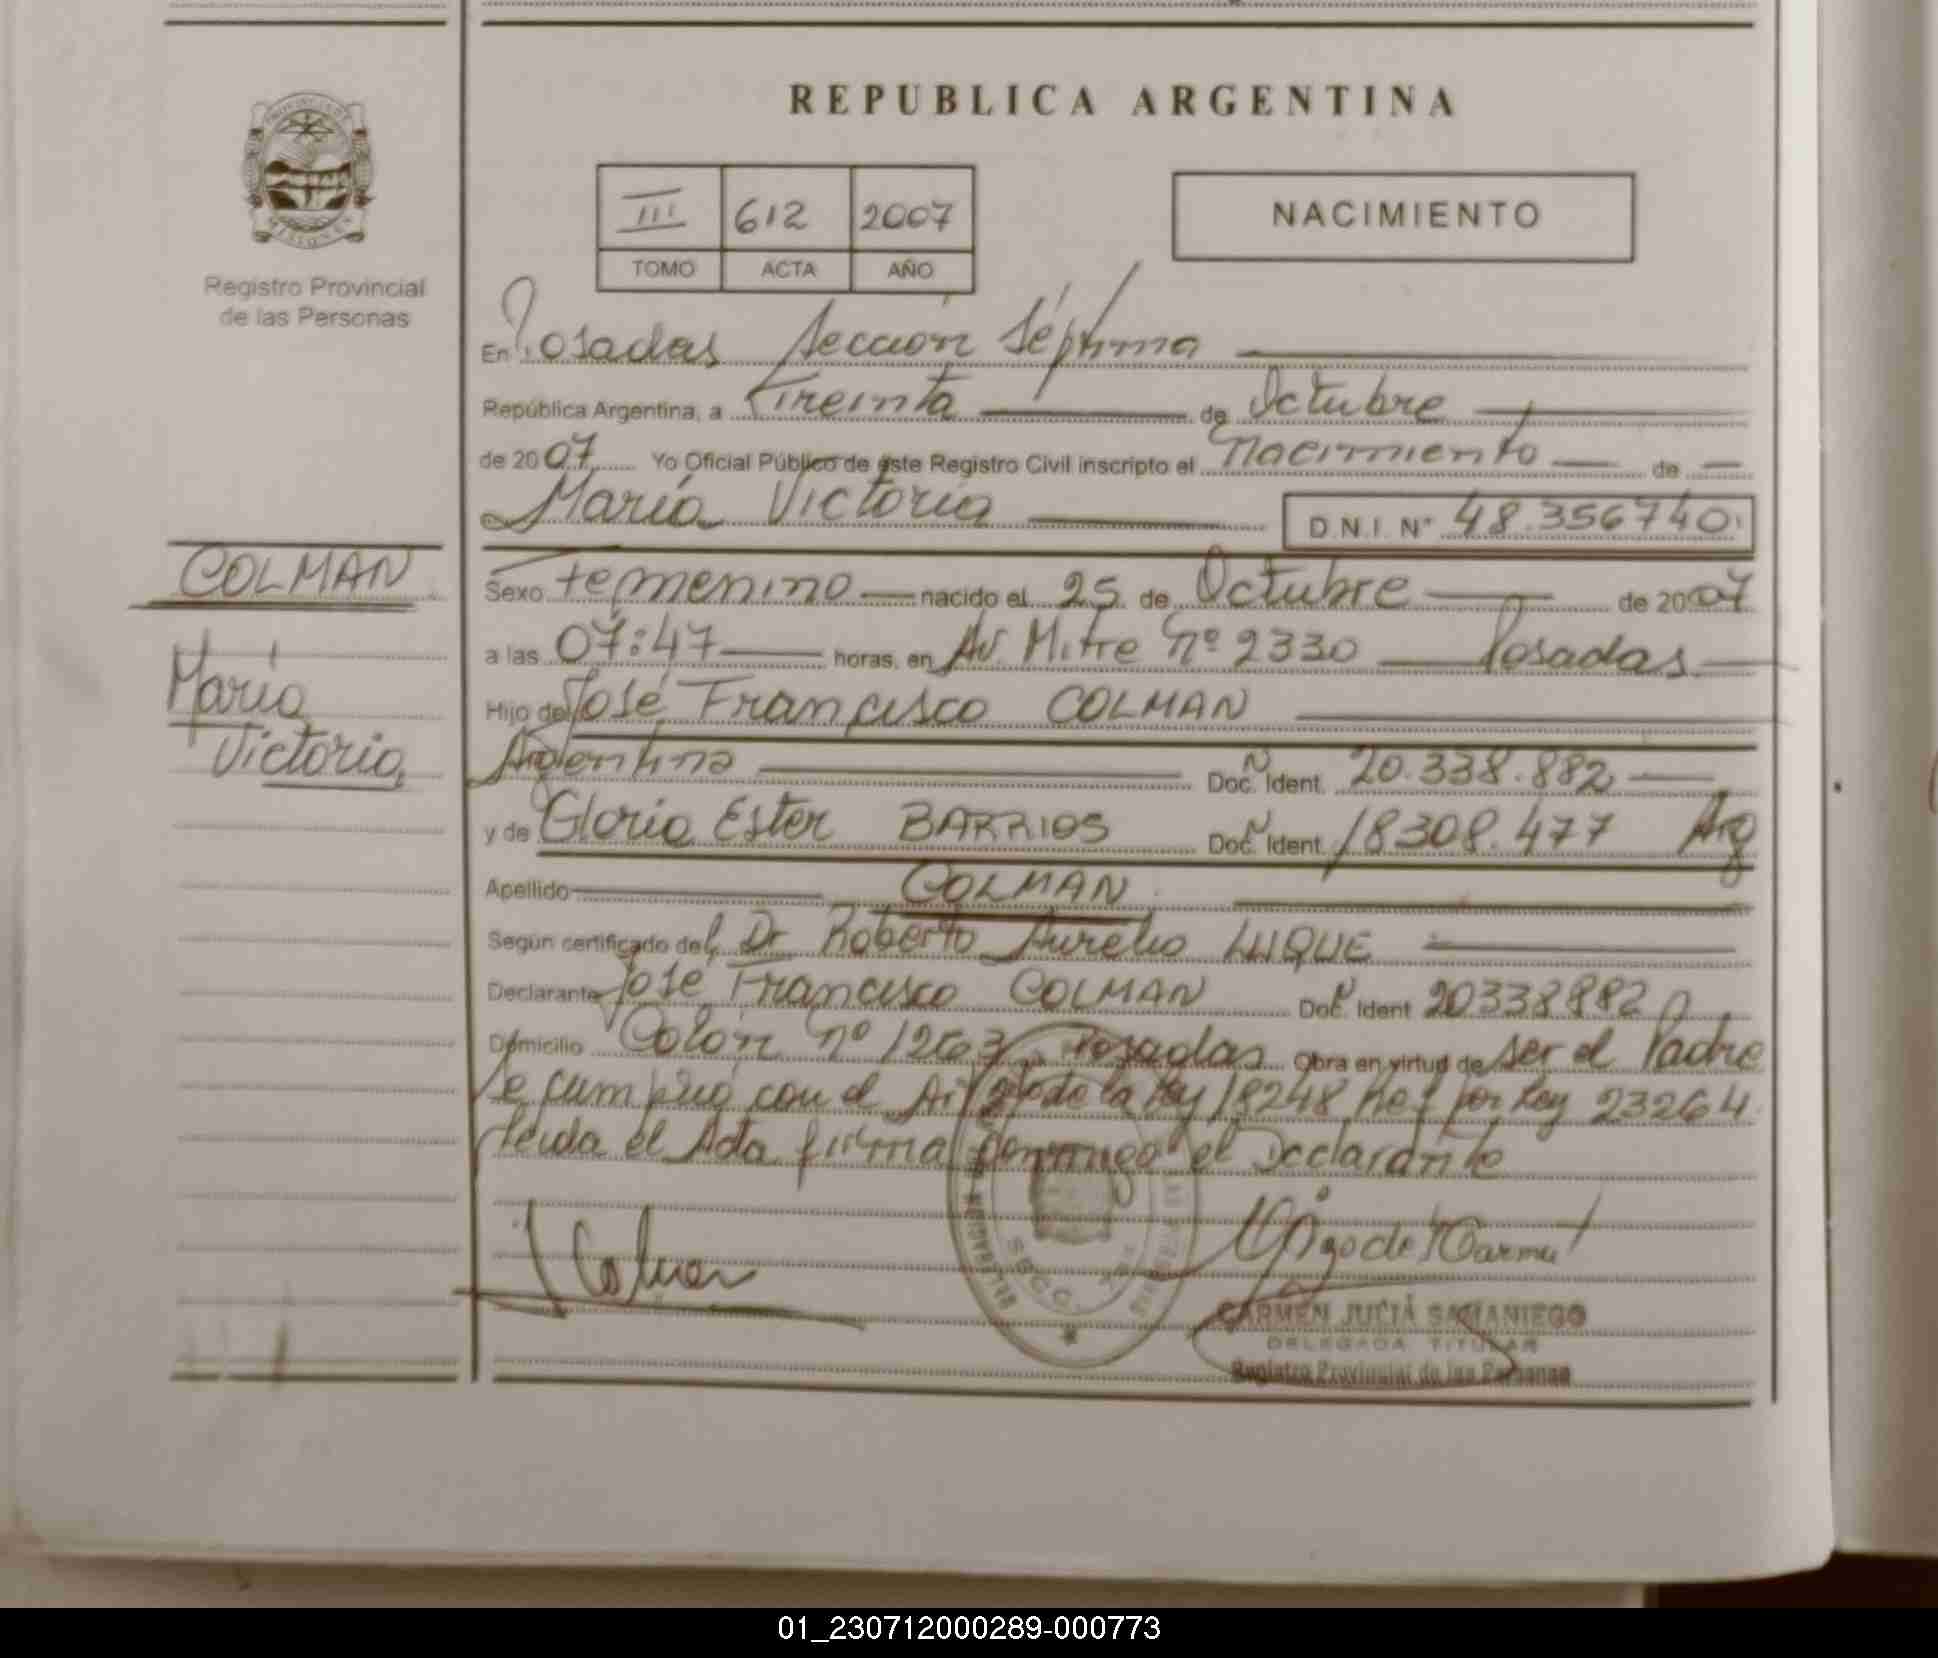 REPUBLICA ARGENTINA
PROVINCIA DE
MISIONES
Registro Provincial
de las Personas
III 612 2007
TOMO ACTA AÑO
NACIMIENTO
En Posadas Sección Séptima
República Argentina, a Treinta de Octubre
de 2007 Yo Oficial Público de este Registro Civil inscripto el Nacimiento de
María Victoria D.N.I. Nº 48.356740
COLMAN
María
Victoria
Sexo Femenino nacido el 25 de Octubre de 2007
a las 07:47 horas, en Av Mitre Nº 2330 Posadas
Hijo de José Francisco COLMAN
Argentina Doc. Ident. 20.338.882
y de Gloria Ester BARRIOS Doc. Ident. 18308.477 Arg
Apellido COLMAN
Según certificado del Dr Roberto Aurelio LUQUE
Declarante José Francisco COLMAN Doc. Ident 20338882
Domicilio Colón nº 1263 Posadas Obra en virtud de ser el Padre
Se cumplió con el Art de la Ley 18248 Ref por Ley 23264
leída el Acta firma conmigo el Declarante
SECC. 7ma
CARMEN JULIA SAMANIEGO
DELEGADA TITULAR
Registro Provincial de las Personas
01_230712000289-000773